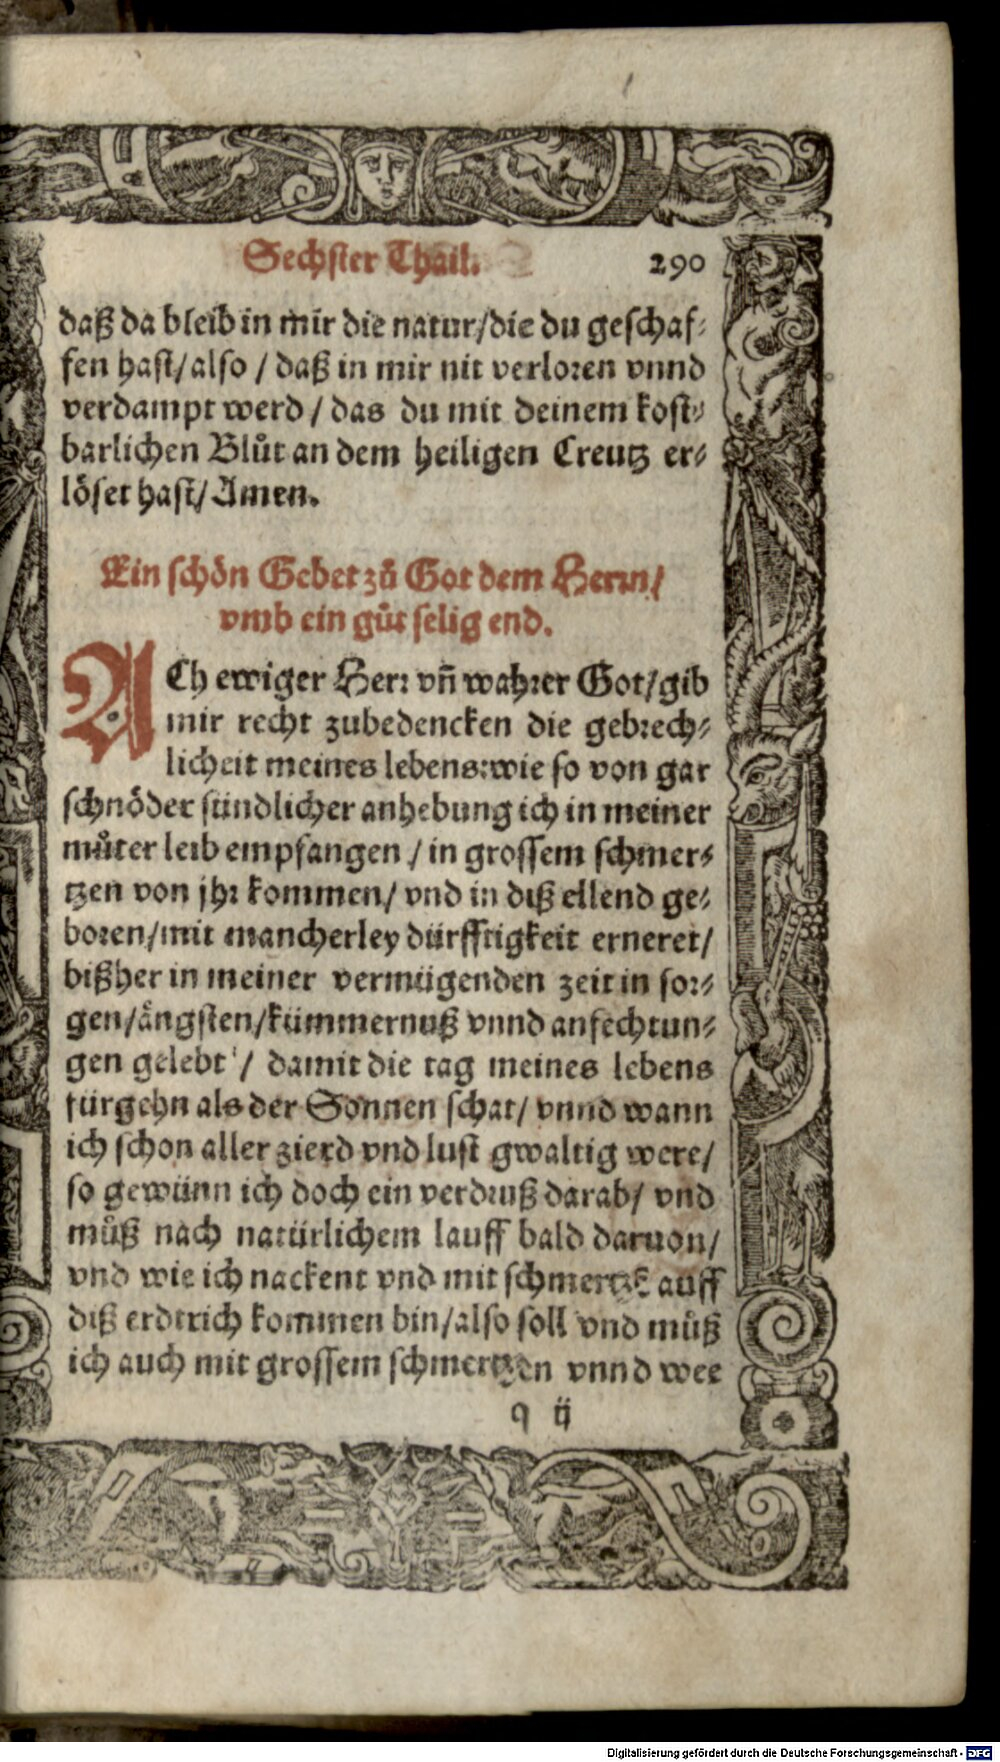 Sechster Thail. 290
daß da bleib in mir die natur/die du geschaf-
fen hast/also / daß in mir nit verloren vnnd
verdampt werd / das du mit deinem kost-
barlichen Blůt an dem heiligen Creutz er-
löset hast/Amen.
Ein schön Gebet zů Got dem Herrn/
vmb ein gůt selig end.
ACh ewiger Herr vñ wahrer Got/gib
mir recht zubedencken die gebrech-
licheit meines lebens:wie so von gar
schnöder sündlicher anhebung ich in meiner
můter leib empfangen / in grossem schmer-
tzen von jhr kommen/ vnd in diß ellend ge-
boren/mit mancherley dürfftigkeit erneret/
bißher in meiner vermügenden zeit in sor-
gen/ängsten/kümmernuß vnnd anfechtun-
gen gelebt / damit die tag meines lebens
fürgehn als der Sonnen schat/ vnnd wann
ich schon aller zierd vnd lust gwaltig were/
so gewünn ich doch ein verdruß darab/ vnd
můß nach natürlichem lauff bald daruon/
vnd wie ich nackent vnd mit auff
diß erdtrich kommen bin/also soll vnd můß
ich auch mit grossem schmertzen vnnd wee
q ij
Digitalisierung gefördert durch die Deutsche Forschungsgemeinschaft - DFG